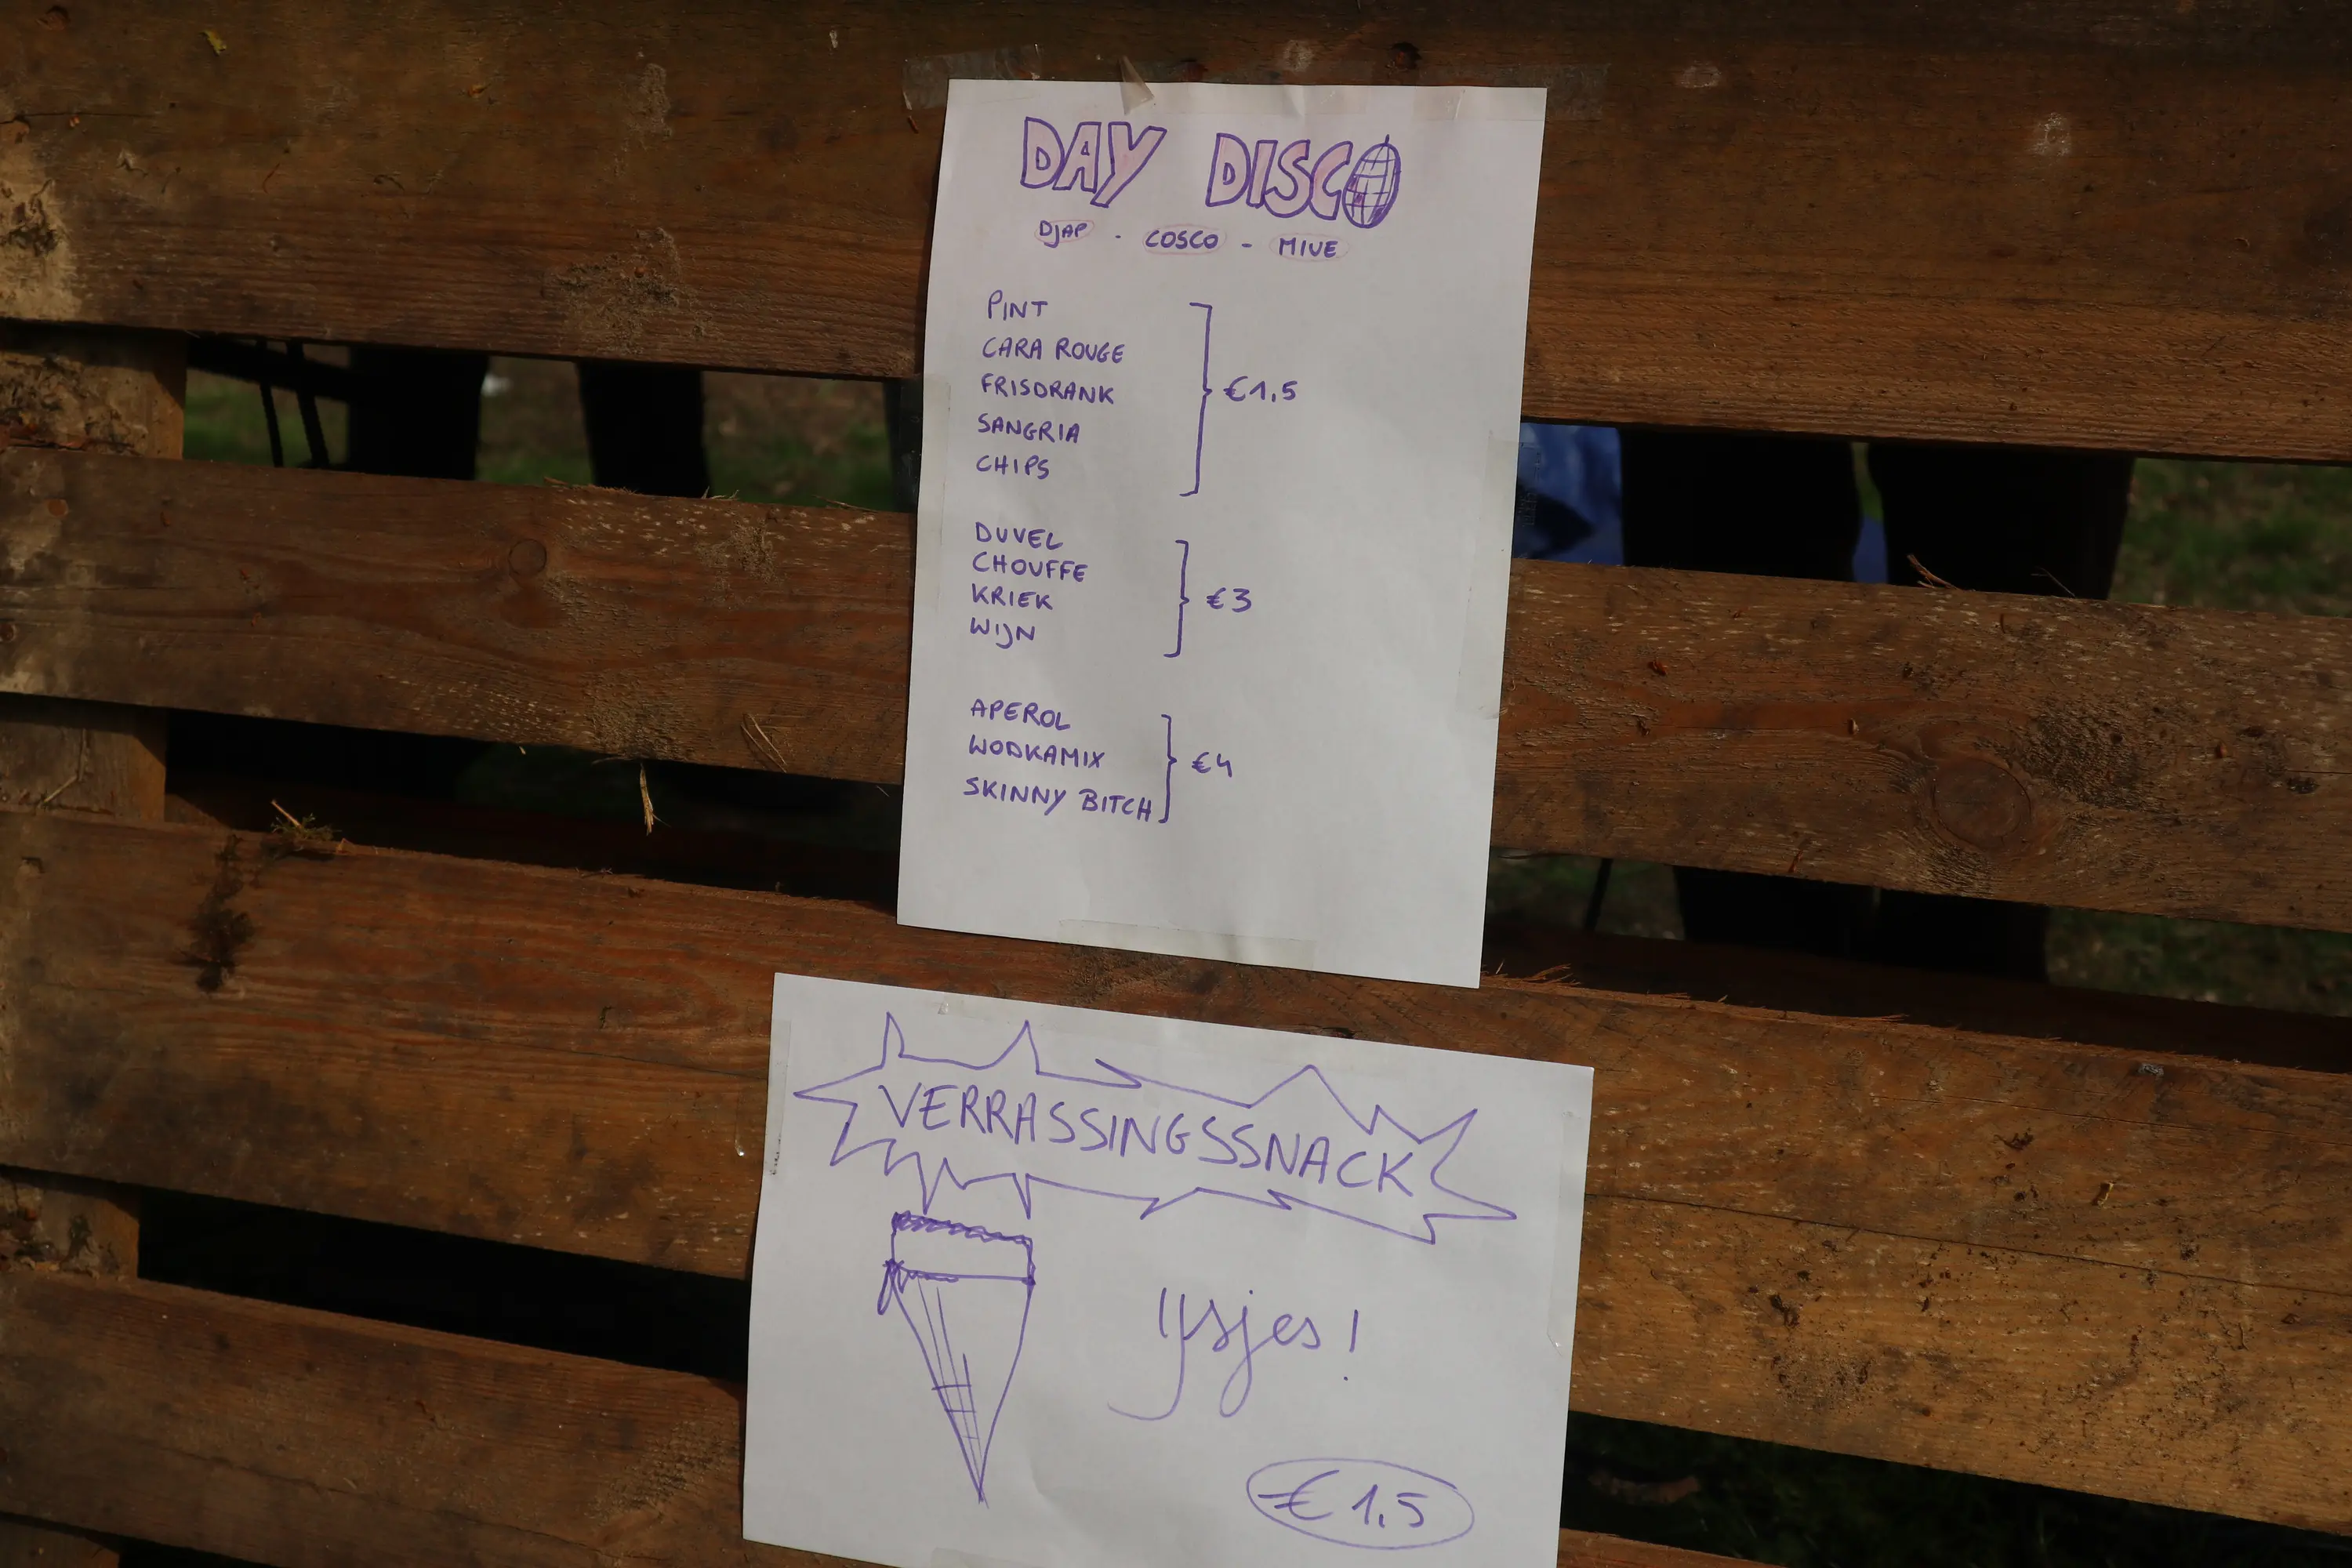 DAY DISCO
DJAP - COSCO - MIVE
PINT
CARA ROUGE
FRISDRANK
SANGRIA
CHIPS
€1,5
DUVEL
CHOUFFE
KRIEK
WIJN
€3
APEROL
WODKAMIX
SKINNY BITCH
€4
VERRASSINGSSNACK
Ijsjes!
€1,5